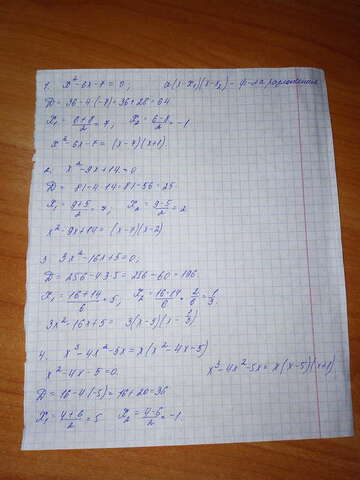 1. x²-6x-7=0; a(x-x₁)(x-x₂) - ф-ла разложения
D = 36-4(-7)=36+28=64
x₁ = (6+8)/2 = 7, x₂ = (6-8)/2 = -1
x²-6x-7 = (x-7)(x+1).
2. x²-9x+14=0
D = 81-4·14=81-56=25
x₁ = (9+5)/2 = 7, x₂ = (9-5)/2 = 2
x²-9x+14 = (x-7)(x-2)
3. 3x²-16x+5=0,
D = 256-4·3·5=256-60=196
x₁ = (16+14)/6 = 5, x₂ = (16-14)/6 = 2/6 = 1/3.
3x²-16x+5 = 3(x-5)(x-1/3)
4. x³-4x²-5x = x(x²-4x-5)
x²-4x-5=0. x³-4x²-5x = x(x-5)(x+1).
D = 16-4(-5)=16+20=36
x₁ = (4+6)/2 = 5 x₂ = (4-6)/2 = -1